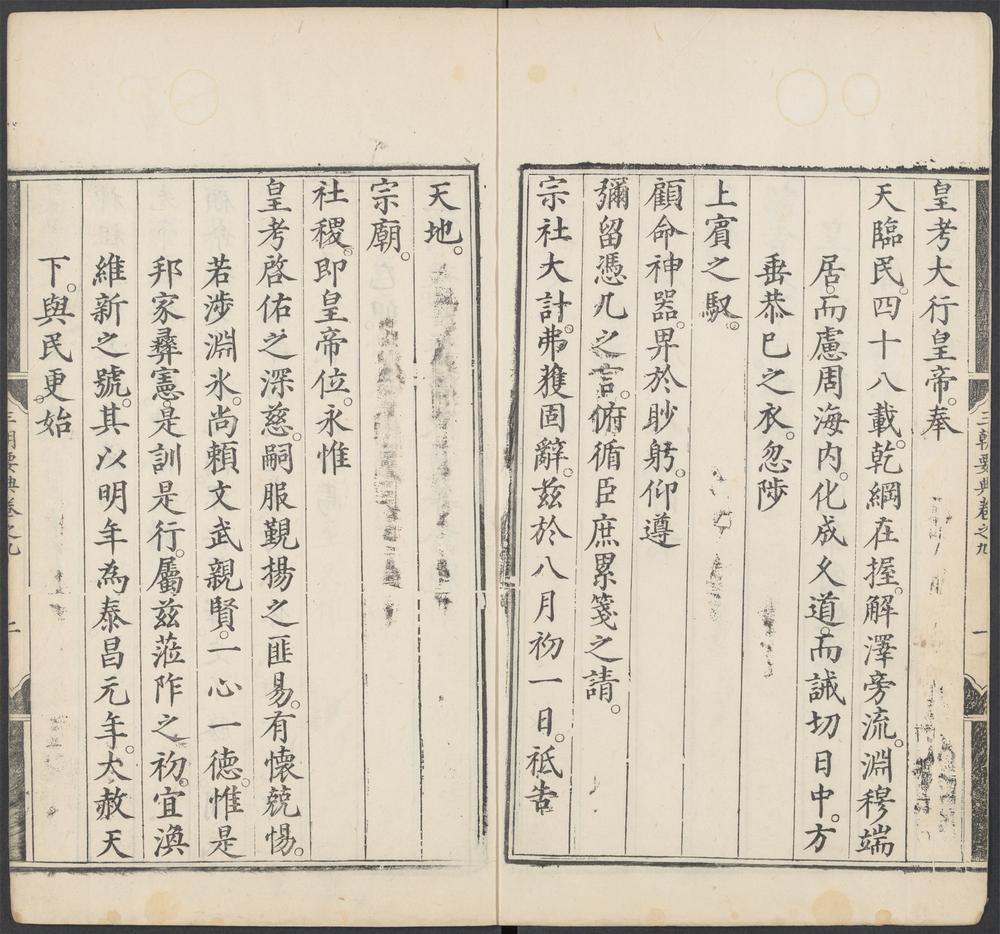 皇考大行皇帝。奉
天臨民。四十八載。乾綱在握。解澤旁流。淵穆端
居。而慮周海內。化成久道。而誡切日中。方
垂恭已之衣。忽陟
上賓之馭。
顧命神器。畀於眇躬。仰遵
彌留憑几之言。俯循臣庶累箋之請。
宗社大計。弗獲固辭。茲於八月初一日。祗告
天地。
宗廟。
社稷。即皇帝位。永惟
皇考啓佑之深慈。嗣服覲揚之匪易。有懷兢惕。
若涉淵氷。尚賴文武親賢。一心一德。惟是
邦家彞憲。是訓是行。屬茲蒞阼之初。宜渙
維新之號。其以明年為泰昌元年。大赦天
下。與民更始
三朝要典卷之九
一
三朝要典卷之九
二